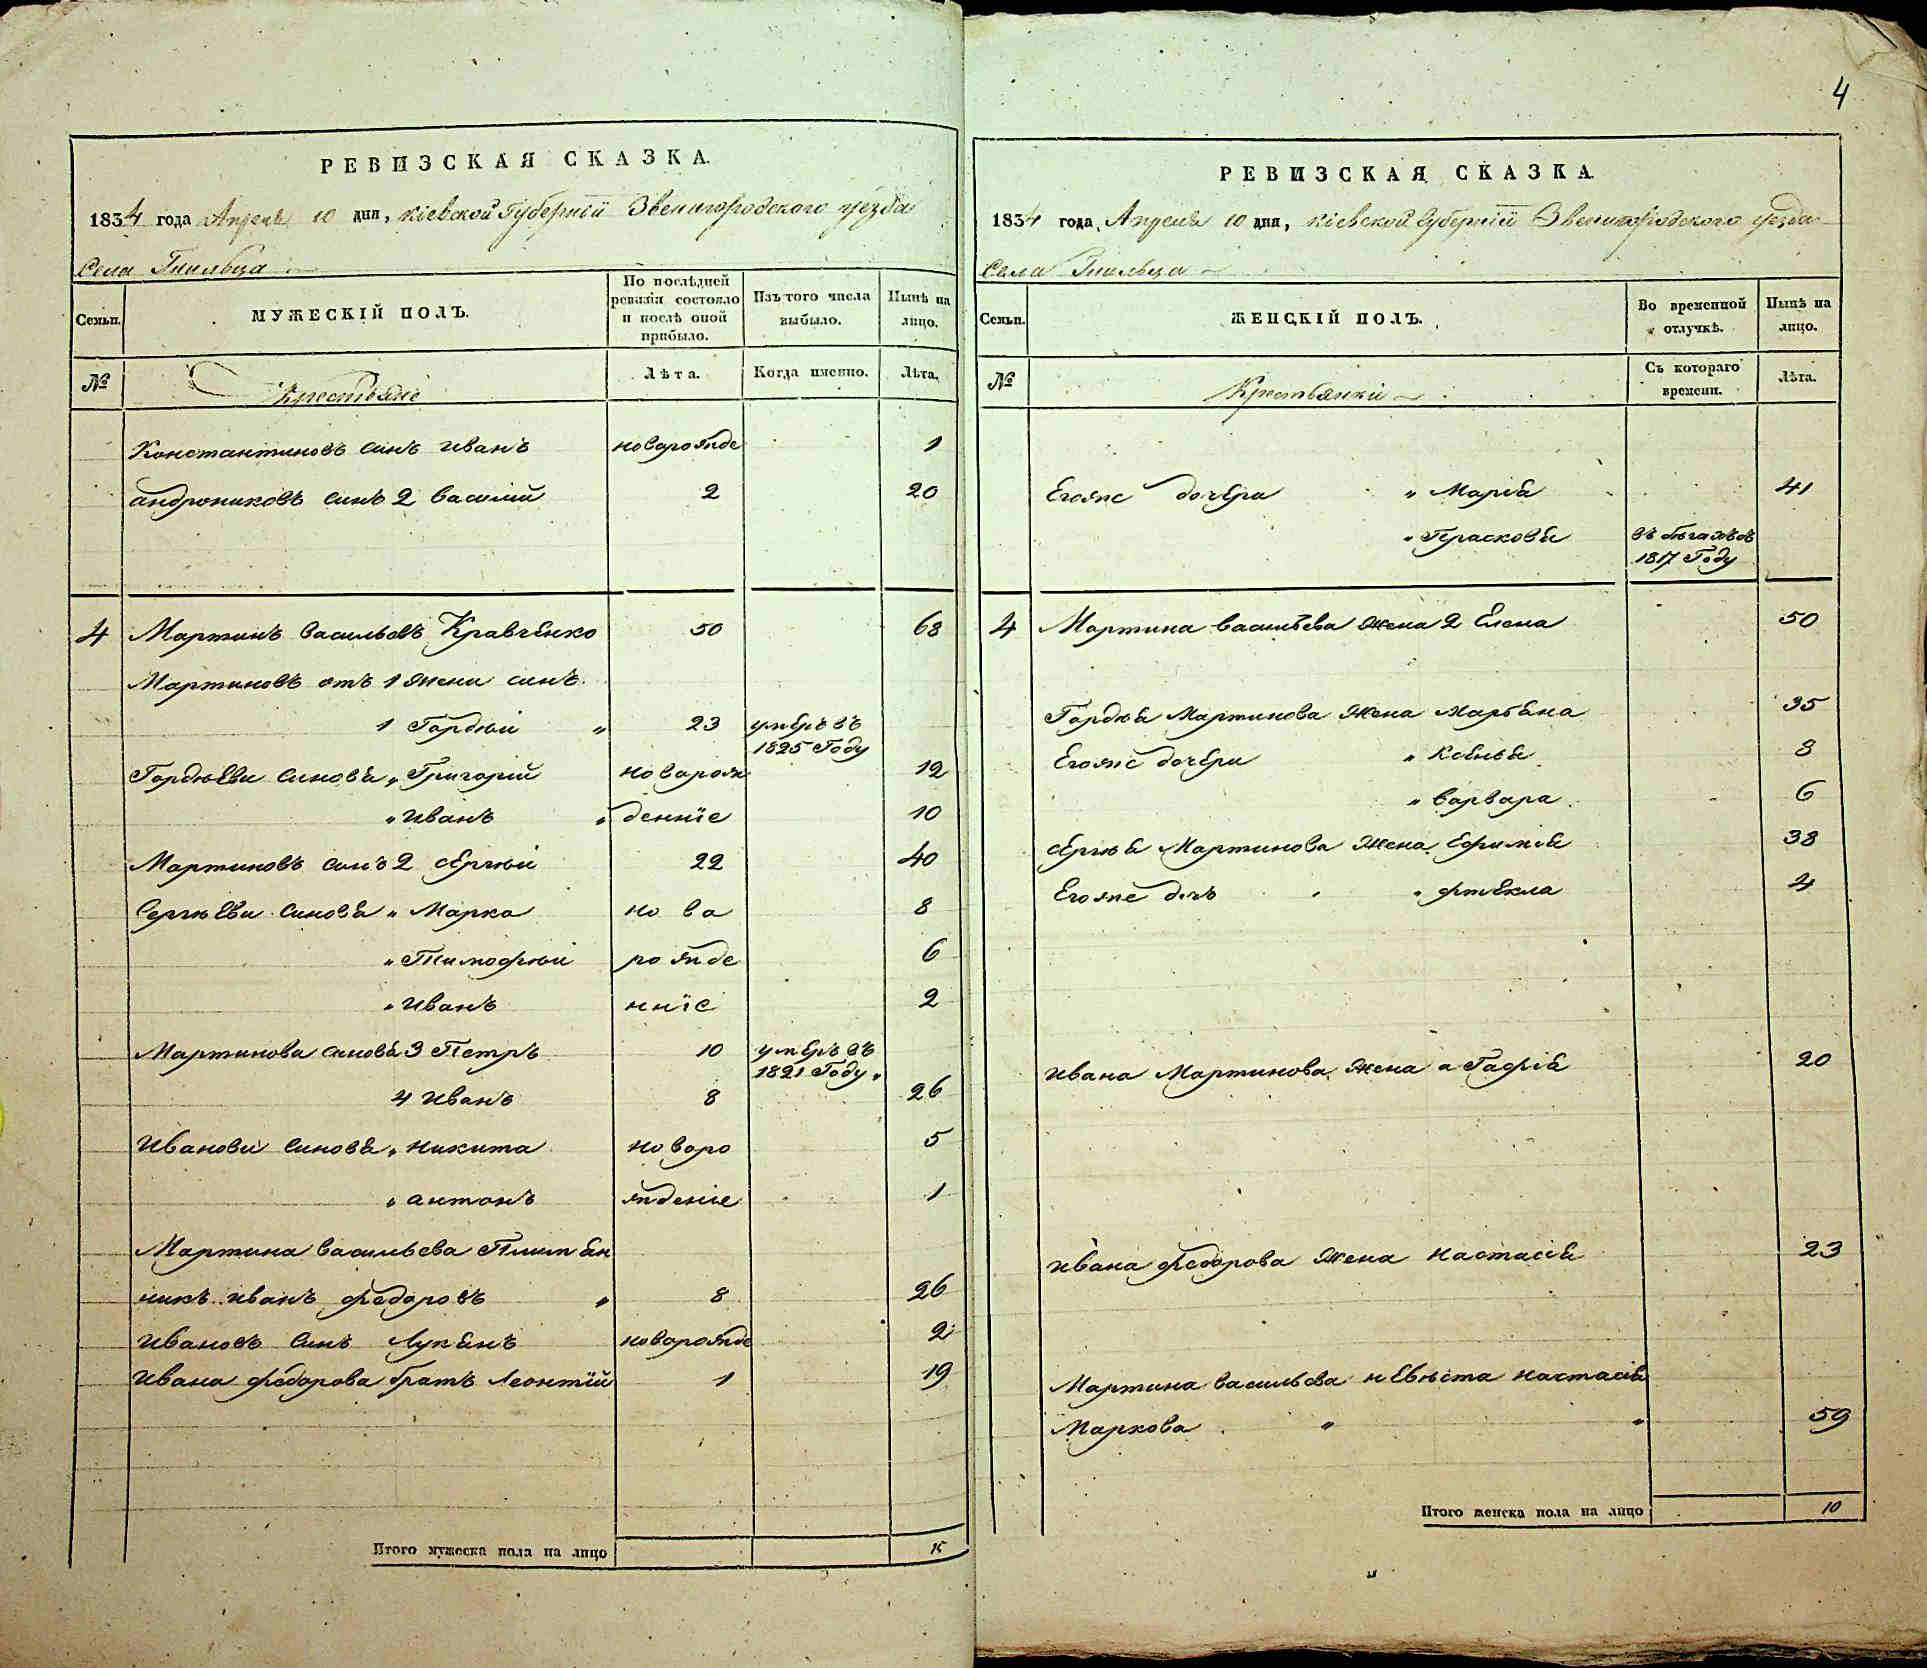 4
РЕВИЗСКАЯ СКАЗКА.
1834 года Апреля 10 дня, Кіевской Губерніи Звенигородского уезда
Села Гнильца
Семьи.
МУЖЕСКІЙ ПОЛЪ.
По послѣдней ревизіи состояло и послѣ оной прибыло.
Изъ того числа выбыло.
Нынѣ на лицо.
№
Крестьяне
Лѣта.
Когда именно.
Лѣта.
Константиновъ синъ Иванъ новорожде 1
Андрониковъ синъ 2 Василій 2 20
4 Мартинъ Васильовъ Кравченко 50 68
Мартиновъ отъ 1 жени синъ
1 Гордѣй " 23 умеръ въ
1825 Году
Гордѣеви синовя " Григорій новорож 12
" Иванъ " денніе 10
Мартиновъ синъ 2 Сергѣй 22 40
Сергѣеви синовя " Марко но во 8
" Тимофѣй рожде 6
" Иванъ нніе 2
Мартинова синовя 3 Петръ 10 умеръ въ
1821 Году "
4 Иванъ 8 26
Иванови синовя " Никита новоро 5
" Антонъ жденіе 1
Мартина Васильева Племян
никъ Иванъ Федоровъ " 8 26
Ивановъ синъ Лукянъ новорожде 2
Ивана Федорова братъ Леонтій 1 19
Итого мужеска пола на лицо 15
РЕВИЗСКАЯ СКАЗКА
1834 года, Апреля 10 дня, Кіевской Губерніи Звенигородского уезда
Села Гнильца
Семьи.
ЖЕНСКІЙ ПОЛЪ.
Во временной отлучкѣ.
Нынѣ на лицо.
№
Крестьянки
Съ котораго времени.
Лѣта.
Егожс дочери " Марія 41
" Парасковя въ бѣгахъ въ
1817 Году
4 Мартина Васильева жена 2 Елена 50
Гордѣя Мартинова жена Марьяна 35
Егожс дочери " Ксенья 8
" Варвара 6
Сергѣя Мартинова жена Ефимія 38
Егоже дочъ " Фтекла 4
Ивана Мартинова жена аГафія 20
Ивана Федорова жена Настасія 23
Мартина Васильева нЕвѣста Настасія
Маркова " " 59
Итого женска пола на лицо 10